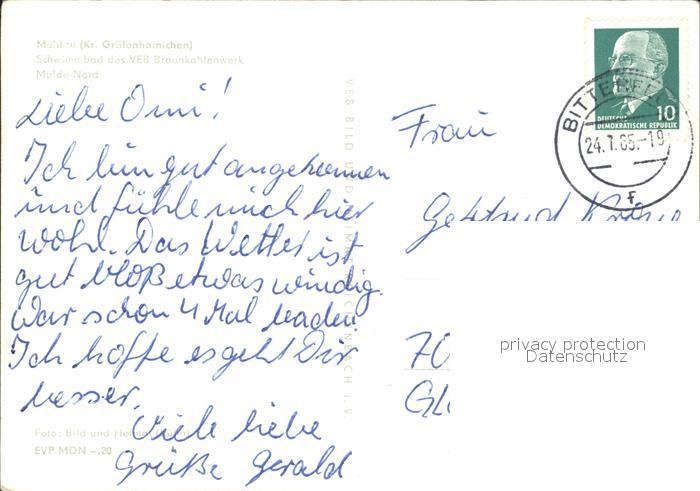 Mühlau (Kr. Gräfenhainichen)
Schwimmbad des VEB Braunkohlenwerk
Mulde-Nord
Liebe Omi!
Ich bin gut angekommen
und fühle mich hier
wohl. Das Wetter ist
gut bloß etwas windig.
War schon 4 Mal baden
Ich hoffe es geht Dir
besser.
Viele liebe
Grüße Gerald
Foto: Bild und Heimat
EVP MDN -,20
VEB BILD UND HEIMAT REICHENBACH I. V.
DEUTSCHE
DEMOKRATISCHE REPUBLIK
10
BITTERFE
24.7.65.-19
f
Frau
Gertrud
70
privacy protection
Datenschutz